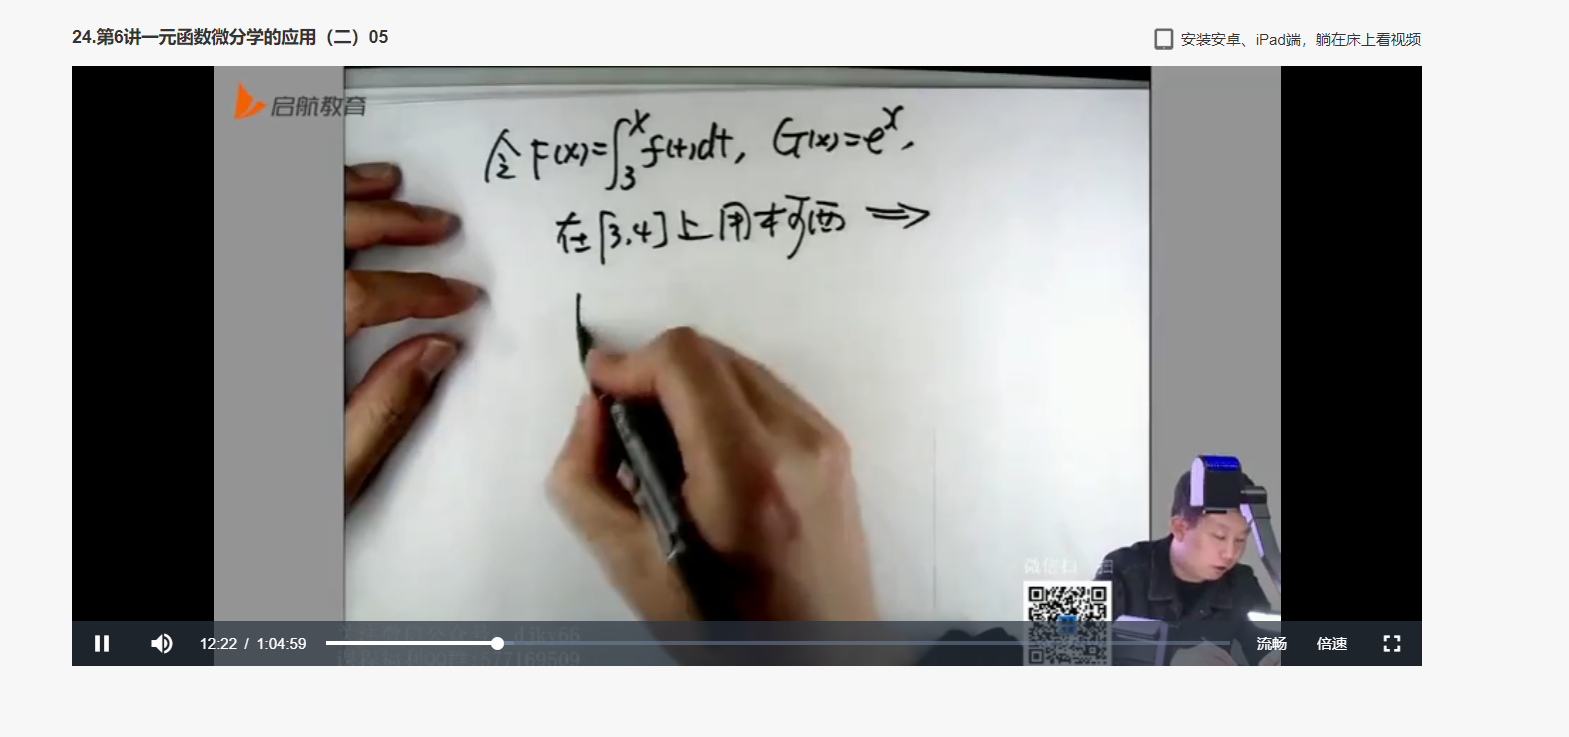 24.第6讲一元函数微分学的应用（二）05
安装安卓、iPad端，躺在床上看视频
启航教育
令 F(x)=∫₃ˣf(t)dt, G(x)=eˣ,
在[3,4]上用柯西 ⇒
微信扫 扫
djky66
:577169509
12:22 / 1:04:59
流畅
倍速